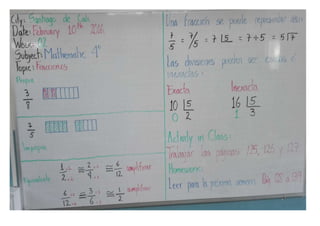 City: Santiago de Cali
Date: February 10th 2026
Subject: Mathematic 4°
Topic: Fracciones
Propia
3/8
7/5
Impropia
Equivalente
1/2 ≅ 2/4 ≅ 6/12 amplificar
6/12 ≅ 3/6 ≅ 1/2 simplificar
Una fracción se puede representar así:
7/5 = 7/5 = 7 ⌊5 = 7÷5 = 5⌈7
Las divisiones pueden ser exactas e
inexactas:
Exacta Inexacta
10 ⌊5 16 ⌊5
0 2 1 3
Activity in Class:
Trabajar las páginas 125, 126 y 127
Homework:
Leer para la próxima semana Pág 128 a